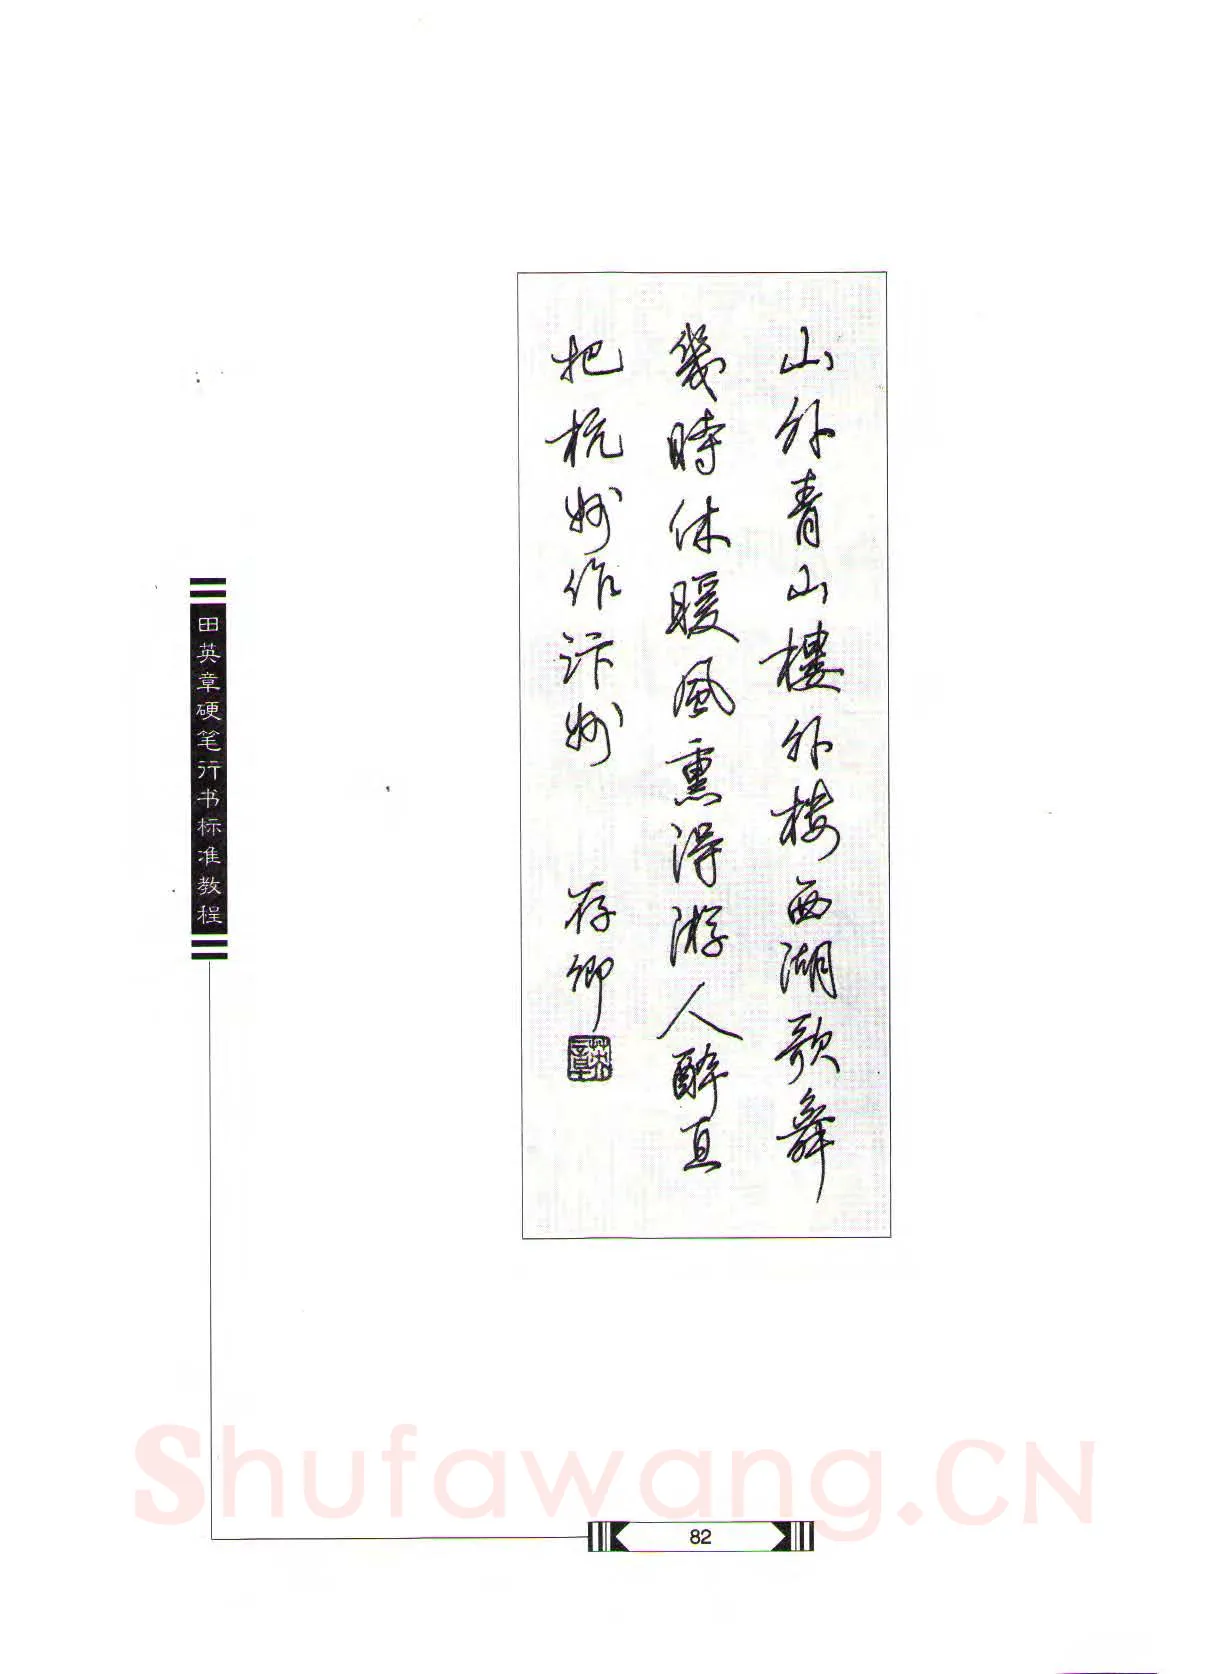 山外青山樓外楼西湖歌舞
幾時休暖風熏得游人醉直
把杭州作汴州 存卿
英章
田英章硬笔行书标准教程
82
Shufawang.CN